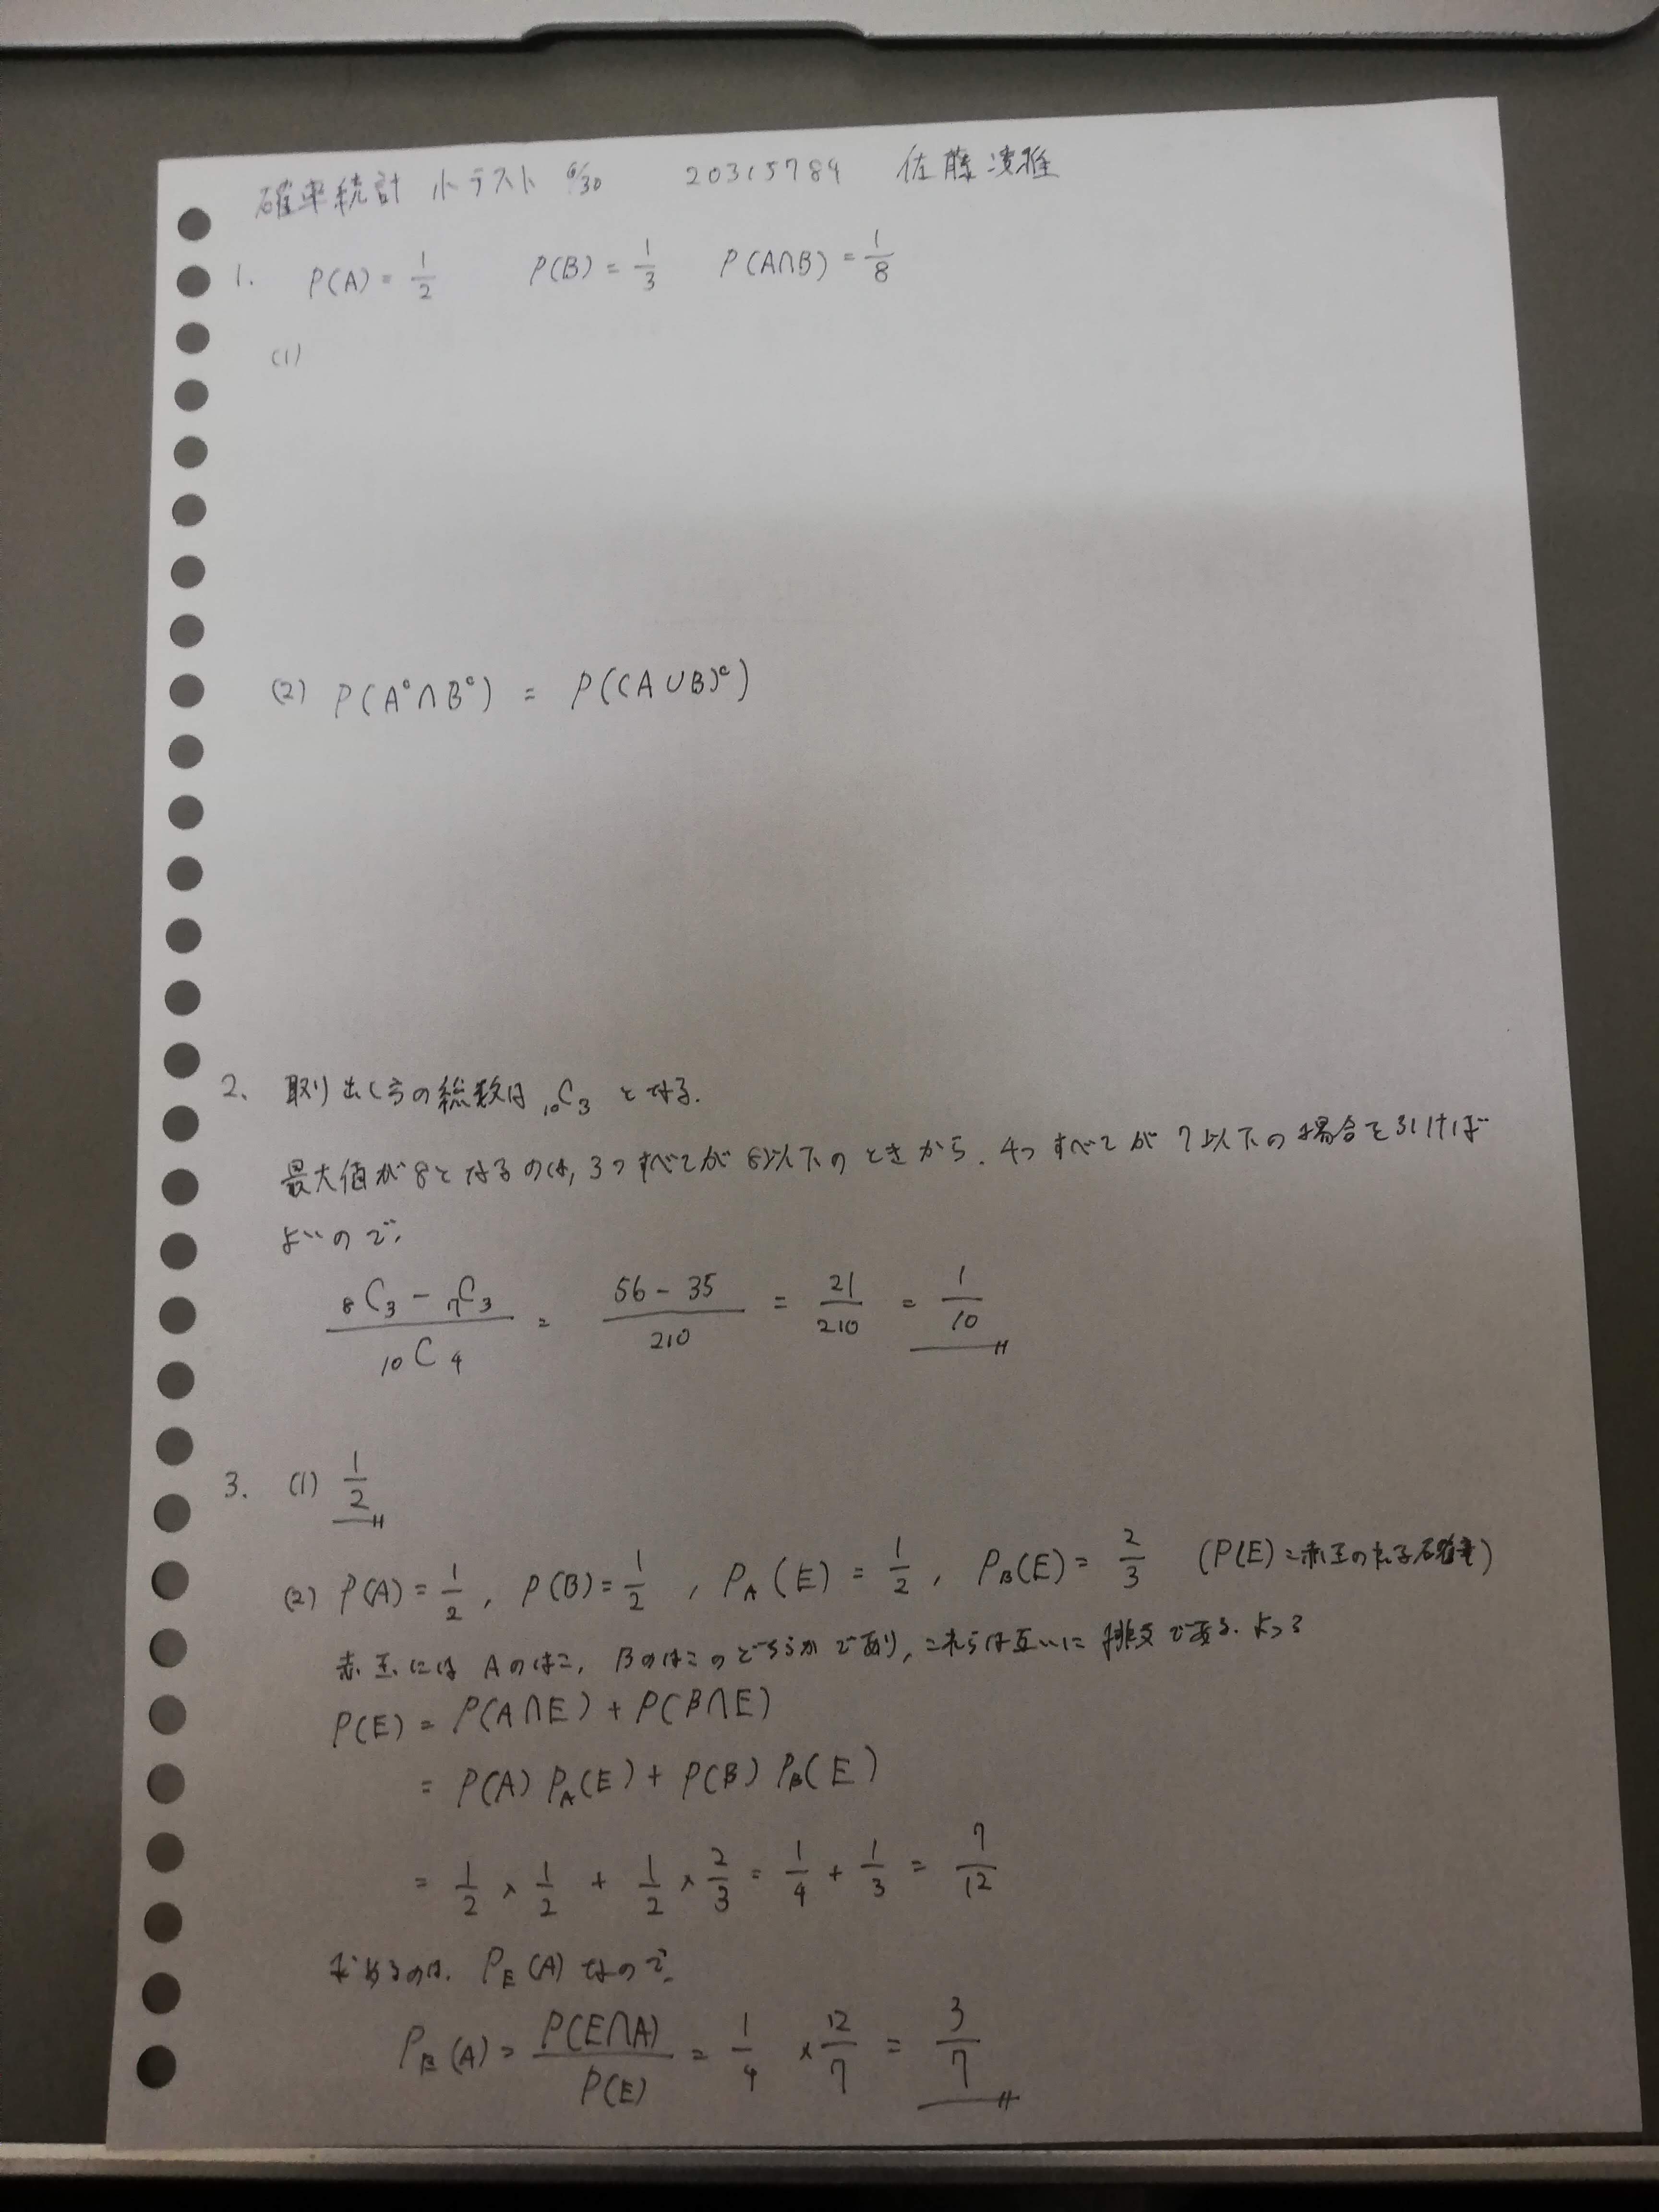 確率統計 小テスト 6/30 20315789 佐藤凌雅
1. P(A) = 1/2 P(B) = 1/3 P(A∩B) = 1/8
(1)
(2) P(Aᶜ∩Bᶜ) = P((A∪B)ᶜ)
2、 取り出し方の総数は ₁₀C₃ となる.
最大値が8となるのは, 3つすべてが8以下のときから、4つすべてが7以下の場合を引けば
よいので、
(₈C₃ - ₇C₃)/₁₀C₄ = (56 - 35)/210 = 21/210 = 1/10
3. (1) 1/2
(2) P(A) = 1/2, P(B) = 1/2, P_A(E) = 1/2, P_B(E) = 2/3 (P(E) = 赤玉の出る確率)
赤玉には Aのはこ, Bのはこのどちらかであり, これらは互いに排反である. よって
P(E) = P(A∩E) + P(B∩E)
= P(A) P_A(E) + P(B) P_B(E)
= 1/2 × 1/2 + 1/2 × 2/3 = 1/4 + 1/3 = 7/12
求めるのは、P_E(A) なので、
P_E(A) = P(E∩A)/P(E) = 1/4 × 12/7 = 3/7